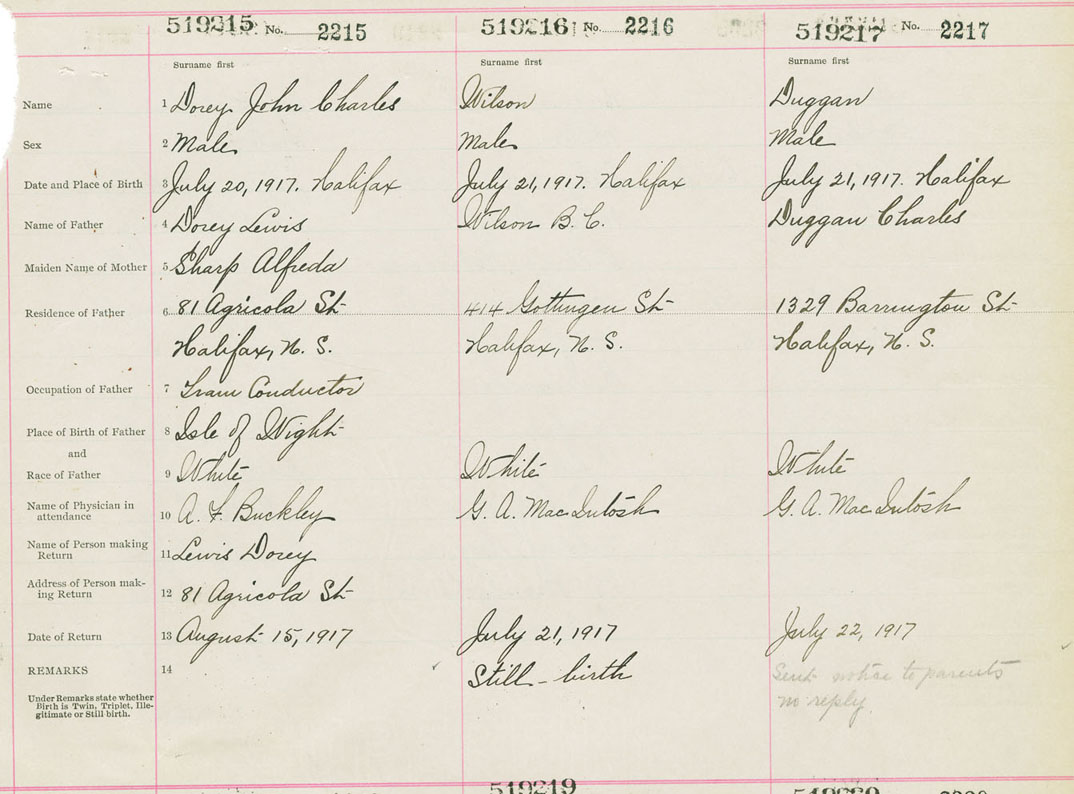 519215 No. 2215 519216 No. 2216 519217 No. 2217
Surname first Surname first Surname first
Name 1 Dorey John Charles Wilson Duggan
Sex 2 Male Male Male
Date and Place of Birth 3 July 20, 1917. Halifax July 21, 1917. Halifax July 21, 1917. Halifax
Name of Father 4 Dorey Lewis Wilson B. C. Duggan Charles
Maiden Name of Mother 5 Sharp Alfreda
Residence of Father 6 81 Agricola St 414 Gottingen St 1329 Barrington St
Halifax, N. S. Halifax, N. S. Halifax, N. S.
Occupation of Father 7 Tram Conductor
Place of Birth of Father 8 Isle of Wight
and
Race of Father 9 White White White
Name of Physician in
attendance 10 A. F. Buckley G. A. MacIntosh G. A. MacIntosh
Name of Person making
Return 11 Lewis Dorey
Address of Person mak-
ing Return 12 81 Agricola St
Date of Return 13 August 15, 1917 July 21, 1917 July 22, 1917
REMARKS 14 Still-birth Sent notice to parents
no reply
Under Remarks state whether
Birth is Twin, Triplet, Ille-
gitimate or Still birth.
519219